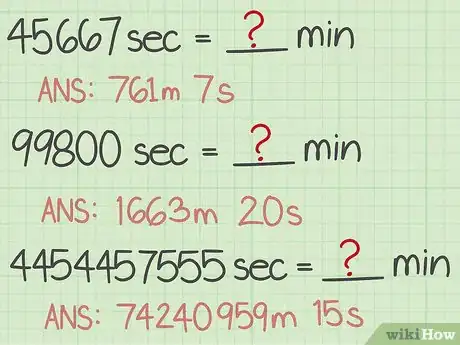 45667 sec = ? min
ANS: 761m 7s
99800 sec = ? min
ANS: 1663m 20s
4454457555 sec = ? min
ANS: 74240959m 15s
wikiHow